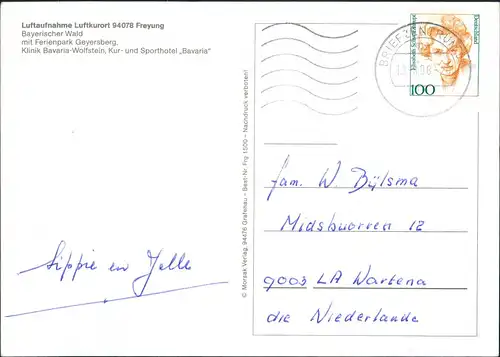 Luftaufnahme Luftkurort 94078 Freyung
Bayerischer Wald
mit Ferienpark Geyersberg,
Klinik Bavaria-Wolfstein, Kur- und Sporthotel „Bavaria“
© Morsak Verlag, 94476 Grafenau – Best-Nr. Frg 1500 – Nachdruck verboten!
BRIEFZENTRUM
Deutschland
100
fam. W. Bijlsma
Midsbuorren 12
9003 LA Wartena
die Niederlande
Sippie en Jelle